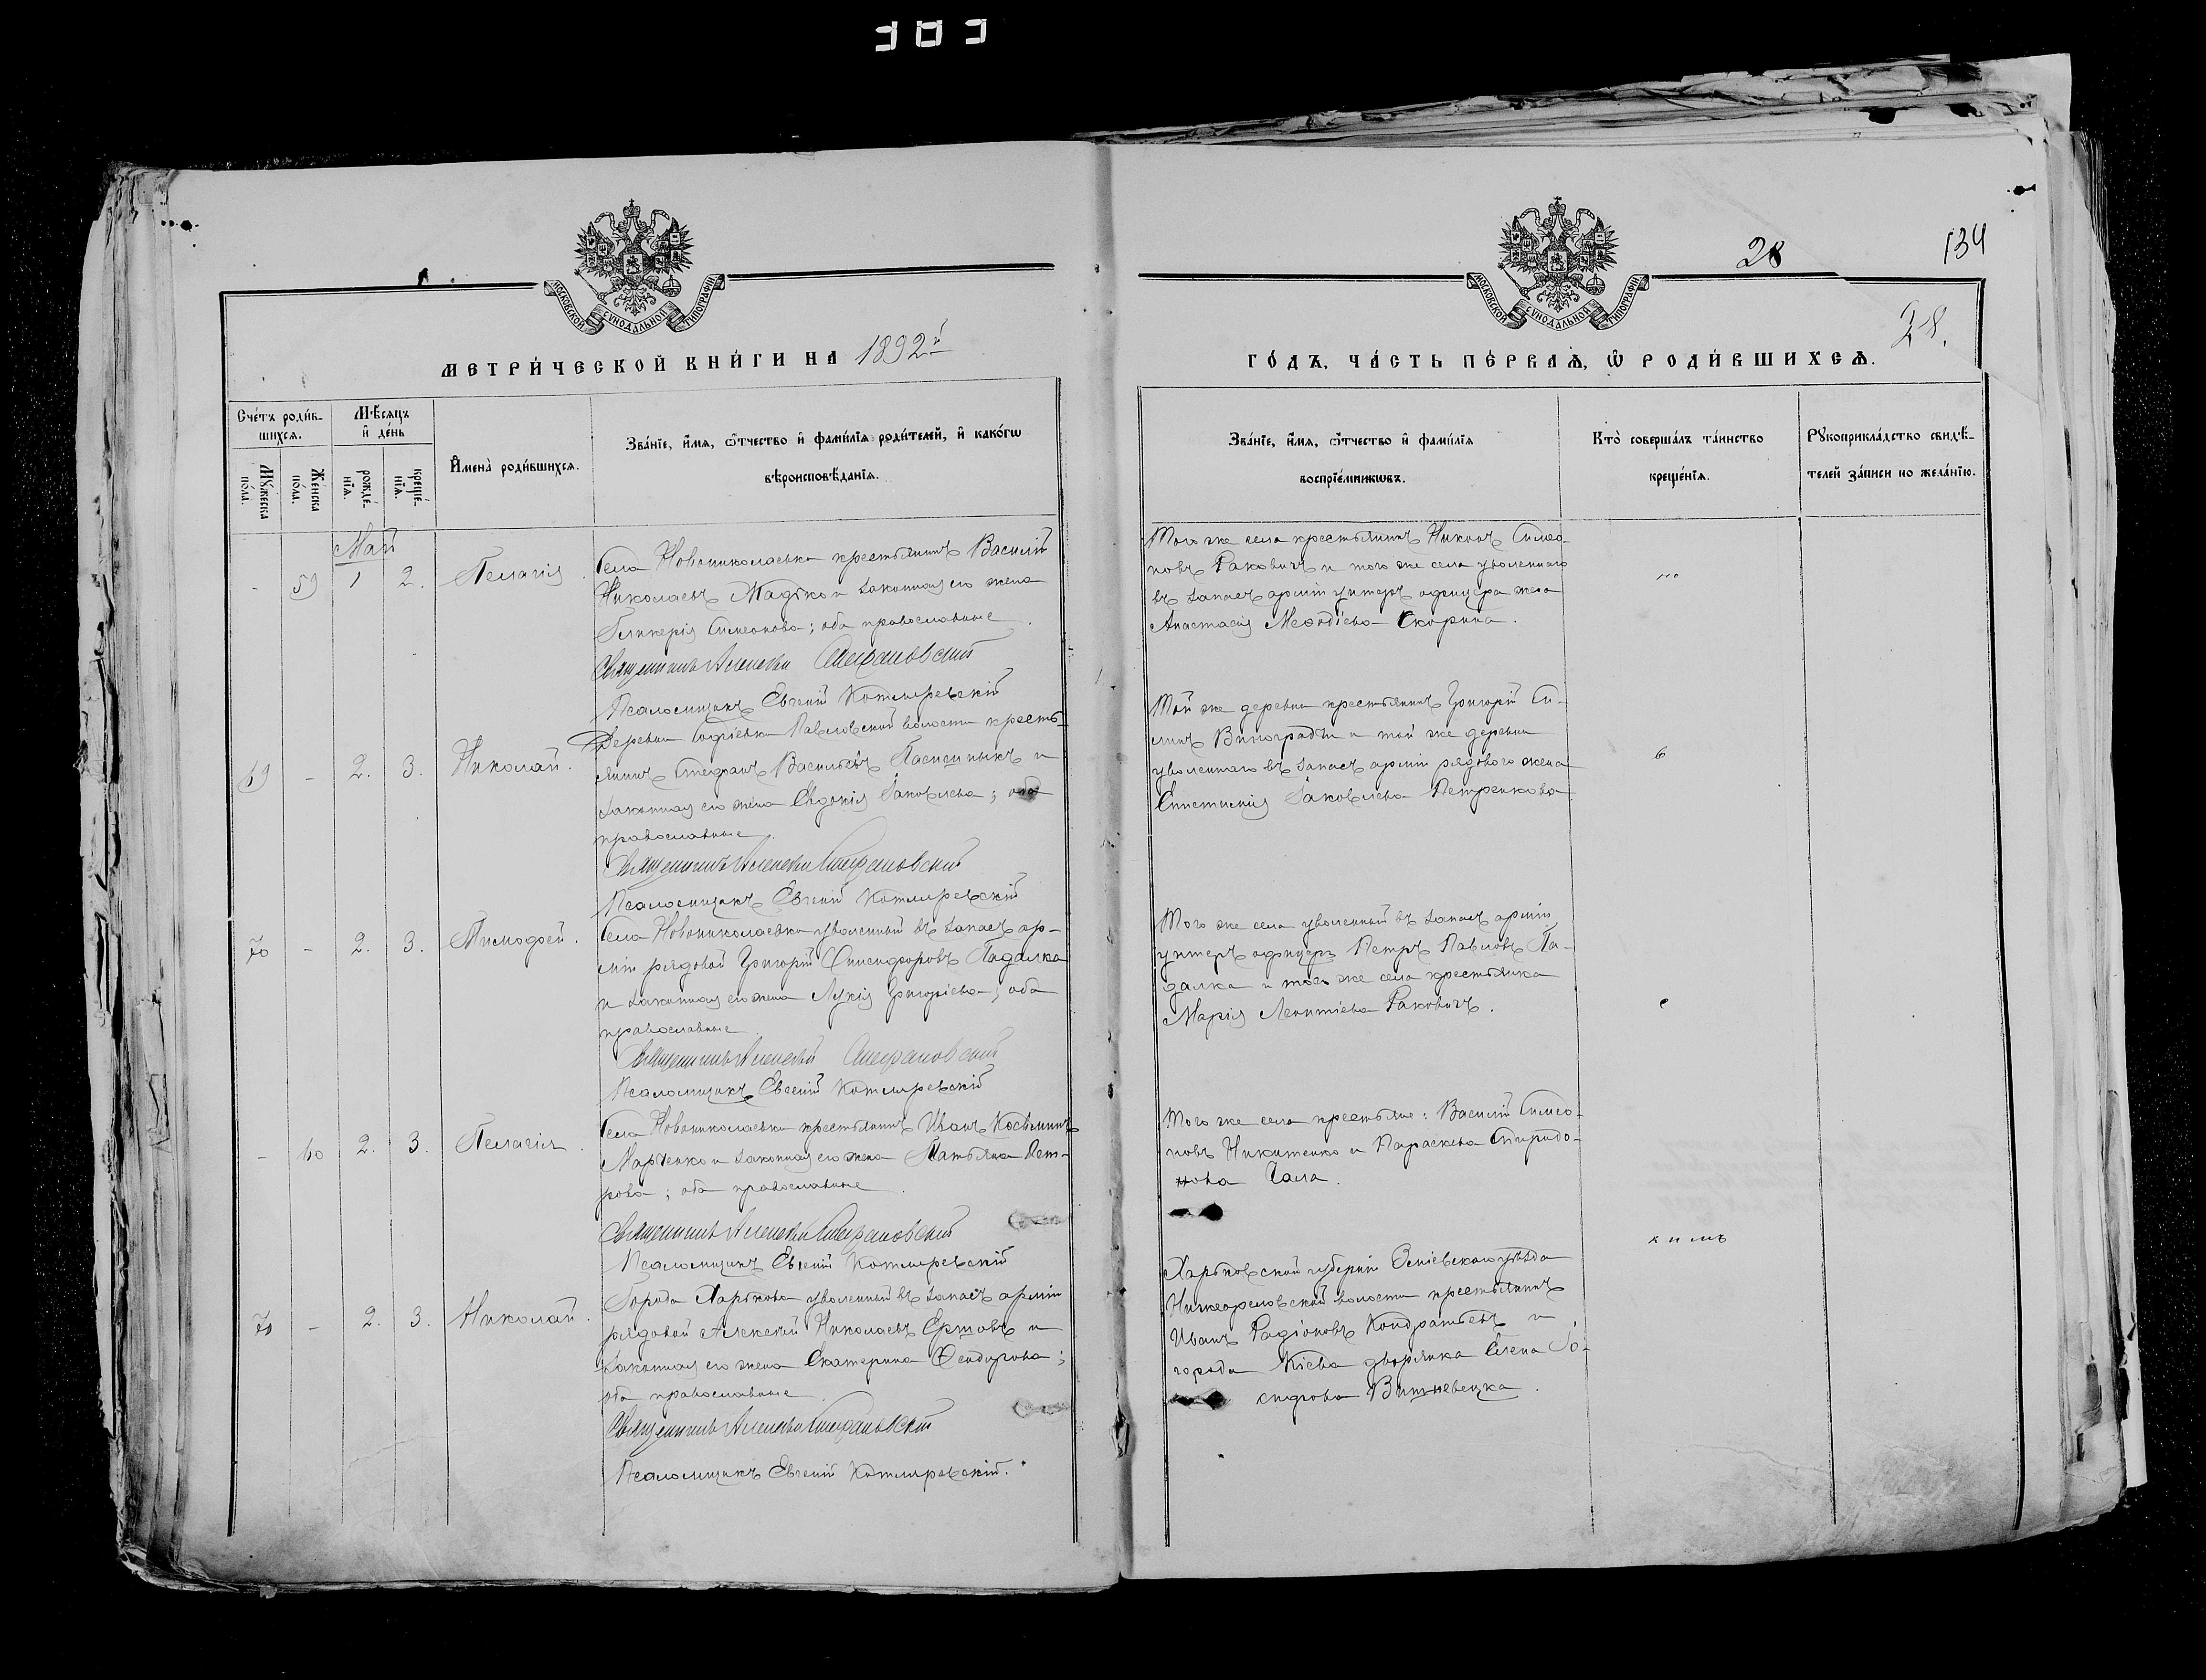 383
МОСКОВСКОЙ СѴНОДАЛЬНОЙ ТИПОГРАФІИ
МЕТРИ́ЧЕСКОЙ КНИ́ГИ НА 1892й
Сче́тъ роди́в-
шихсѧ.
Мѣ́сѧцъ
и҆ де́нь
Мꙋ́жеска
по́ла.
Же́нска
по́ла.
рожде́-
нїѧ.
креще́-
нїѧ.
И҆мена̀ роди́вшихсѧ.
Зва́нїе, и҆́мѧ, ѻ҆́тчество и҆ фами́лїѧ роди́телей, и҆ како́гѡ
вѣроисповѣ́данїѧ.
Май
- 59 1 2. Пелагія
Села Новониколаевка крестьянинъ Василій
Николаевъ Мадько и законная его жена
Гликерія Симеонова; оба православные
Священникъ Алексѣй Стефановскій
Псаломщикъ Евгеній Котляревскій
69 - 2. 3. Николай.
Деревни Софіевка Павловской волости кресть-
янинъ Стефанъ Васильевъ Пасишныкъ и
законная его жена Евдокія Іаковлева; оба
православные.
Священникъ Алексѣй Стефановскій
Псаломщикъ Евгеній Котляревскій
70 - 2. 3. Тимофей.
Села Новониколаевка уволенный въ запасъ ар-
міи рядовой Григорій Онисифоровъ Падалка
и законная его жена Лукія Григоріева; оба
православные
Священникъ Алексѣй Стефановскій
Псаломщикъ Евгеній Котляревскій
- 60 2. 3. Пелагія.
Села Новониколаевка крестьянинъ Иванъ Косьминъ
Марченко и законная его жена Татьяна Пет-
рова; оба православные.
Священникъ Алексѣй Стефановскій
Псаломщикъ Евгеній Котляревскій
71 - 2. 3. Николай.
Города Харькова уволенный въ запасъ арміи
рядовой Алексѣй Николаевъ Ершовъ и
законная его жена Екатерина Ѳеодорова;
оба православные.
Священникъ Алексѣй Стефановскій
Псаломщикъ Евгеній Котляревскій.
МОСКОВСКОЙ СѴНОДАЛЬНОЙ ТИПОГРАФІИ
28
134
28.
ГО́ДЪ, ЧА́СТЬ ПЕ́РВАѦ, Ѽ РОДИ́ВШИХСѦ.
Зва́нїе, и҆́мѧ, ѻ҆́тчество и҆ фами́лїѧ
воспрїе́мникѡвъ.
Кто̀ соверша́лъ та́инство
креще́нїѧ.
Рꙋкоприкла́дство свидѣ́-
телей за́писи по жела́нїю.
Того же села крестьянинъ Никонъ Симео-
новъ Раковичъ и того же села уволеннаго
въ запасъ арміи унтеръ офицера жена
Анастасія Меѳодіева Скорина.
Той же деревни крестьянинъ Григорій Си-
линъ Виноградъ и той же деревни
уволеннаго въ запасъ арміи рядового жена
Епистимія Іаковлева Петренкова
Того же села уволенный въ запасъ арміи
унтеръ офицеръ Петръ Павловъ Па-
далка и того же села крестьянка
Марія Леонтіева Раковичъ.
Того же села крестьяне: Василій Симео-
новъ Никитенко и Параскева Спиридо-
нова Чала.
Харьковской губерніи Зміевскаго уѣзда
Нижеореловской волости крестьянинъ
Иванъ Радіоновъ Кондратьевъ и
города Кіева дворянка Елена Іо-
сифова Вишневецка.